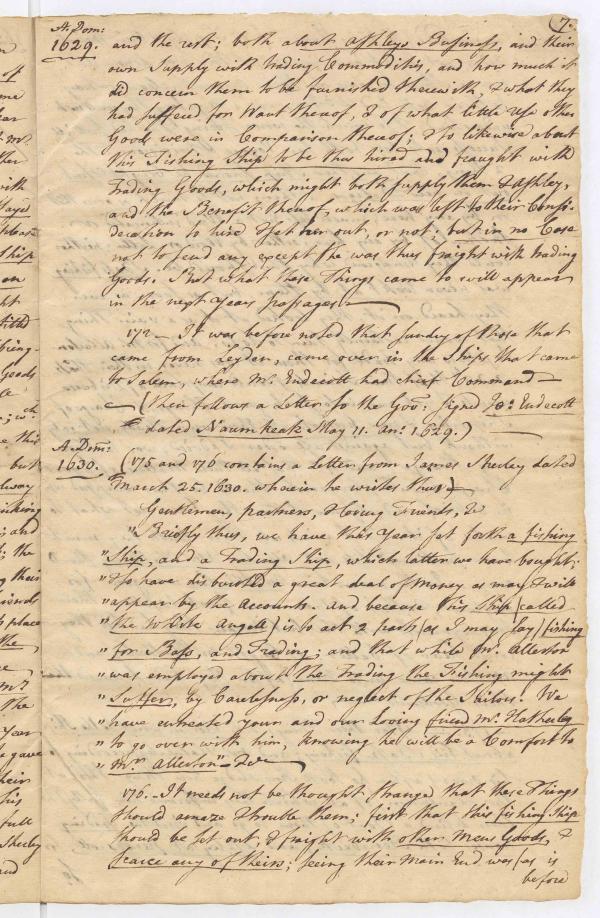 7.
A. Dom:
1629. and the rest; both about Ashleys Business, and their
own Supply with trading Commodities, and how much it
did concern them to be furnished therewith, & what they
had suffered for Want thereof, & of what little Use other
Goods were in Comparison thereof; & so likewise about
this Fishing Ship to be thus hired and fraught with
Trading Goods, which might both supply them & Ashley,
and the Benefit thereof, which was left to their Consi-
deration to hire & set her out, or not; but in no Case
not to send any except she was thus freight with trading
Goods. But what these Things came to will appear
in the next Years passages
172 — It was before noted that sundry of those that
came from Leyden, came over in the Ships that came
to Salem, where Mr. Endecott had chief Command —
(Then follows a Letter to the Gov: signed Jo: Endecott
dated Naumkeak May 11. an: 1629.)
A. Dom:
1630. (175 and 176 contains a Letter from James Sherley dated
March 25. 1630. wherein he writes thus)
Gentlemen, partners, & loving Friends, &c
"Briefly thus, we have this Year set forth a fishing
"Ship, and a Trading Ship, which latter we have bought;
"& so have disbursted a great deal of Money as may & will
"appear by the Accounts. and because this Ship (called
"the White Angell) is to act 2 parts (as I may say) fishing
"for Bass, and Trading; and that while Mr. Allerton
"was employed about the Trading the Fishing might
"Suffer, by Carelesness, or neglect of the Sailors. We
"have entreated your and our loving friend Mr. Hatherley
"to go over with him, knowing he will be a Comfort to
"Mr. Allerton" — &c
176. It needs not be thought strange that these Things
should amaze & trouble them; first that this fishing Ship
should be set out, & freight with other Mens Goods, &
scarce any of theirs; seeing their main End was (as is
before